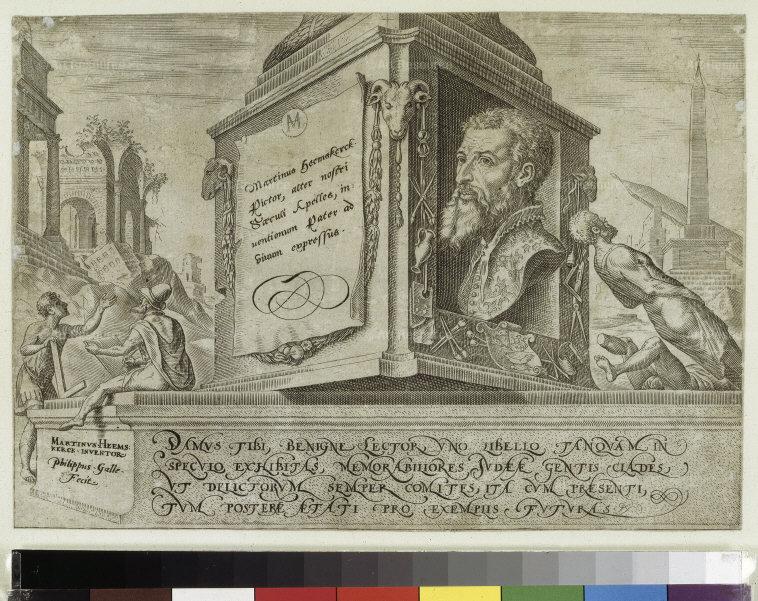 M
Martinus Heemskerck
Pictor, alter nostri
Sæculi Apelles, in-
uentionum Pater ad
viuum expressus.
MARTINVS HEEMS-
KERCK INVENTOR
Philippus Galle
Fecit
DAMVS TIBI, BENIGNE LECTOR, VNO LIBELLO TANQVAM IN
SPECVLO EXHIBITAS, MEMORABILIORES IVDEÆ GENTIS CLADES,
VT DELICTORVM SEMPER COMITES, ITA CVM PRÆSENTI,
TVM POSTERÆ ÆTATI PRO EXEMPLIS FVTVRAS